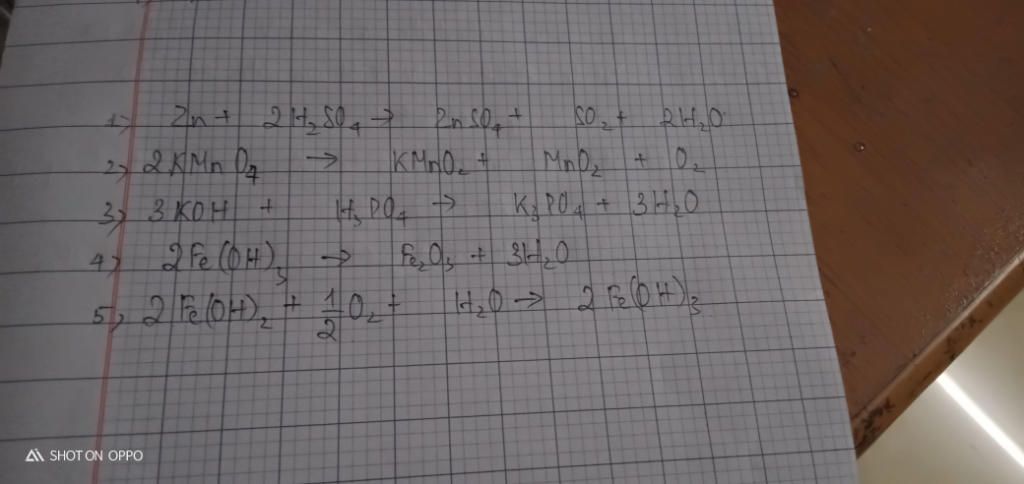 1) Zn + 2H₂SO₄ → ZnSO₄ + SO₂ + 2H₂O
2) 2KMnO₄ → KMnO₂ + MnO₂ + O₂
3) 3KOH + H₃PO₄ → K₃PO₄ + 3H₂O
4) 2Fe(OH)₃ → Fe₂O₃ + 3H₂O
5) 2Fe(OH)₂ + 1/2 O₂ + H₂O → 2Fe(OH)₃
SHOT ON OPPO